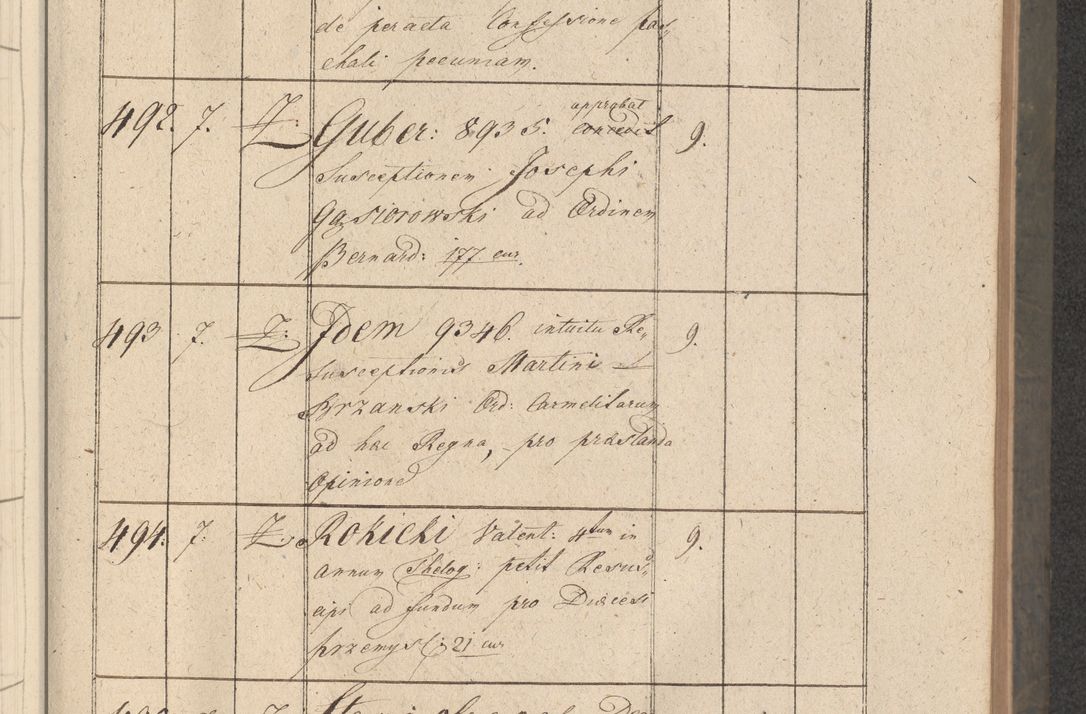 de peracta Confessione pas„
chali pecuniam.
492. 7. Z: Guber: 8935. approbat 9.
Susceptionem Josephi
Gąsiorowski ad Ordinem
Bernard: 177 cur.
493 7. Z: Idem 9346. intuitu Re„ 9.
susceptionis Martini
Skrzanski Ord: Carmelitarum
ad hac Regna, pro præstanda
Opinione
494. 7. Z. Rokicki Valent: 4tum in 9.
annum Theolog: petit Resus„
cipi ad fundum pro Diæcesi
przemysl: 21 cur